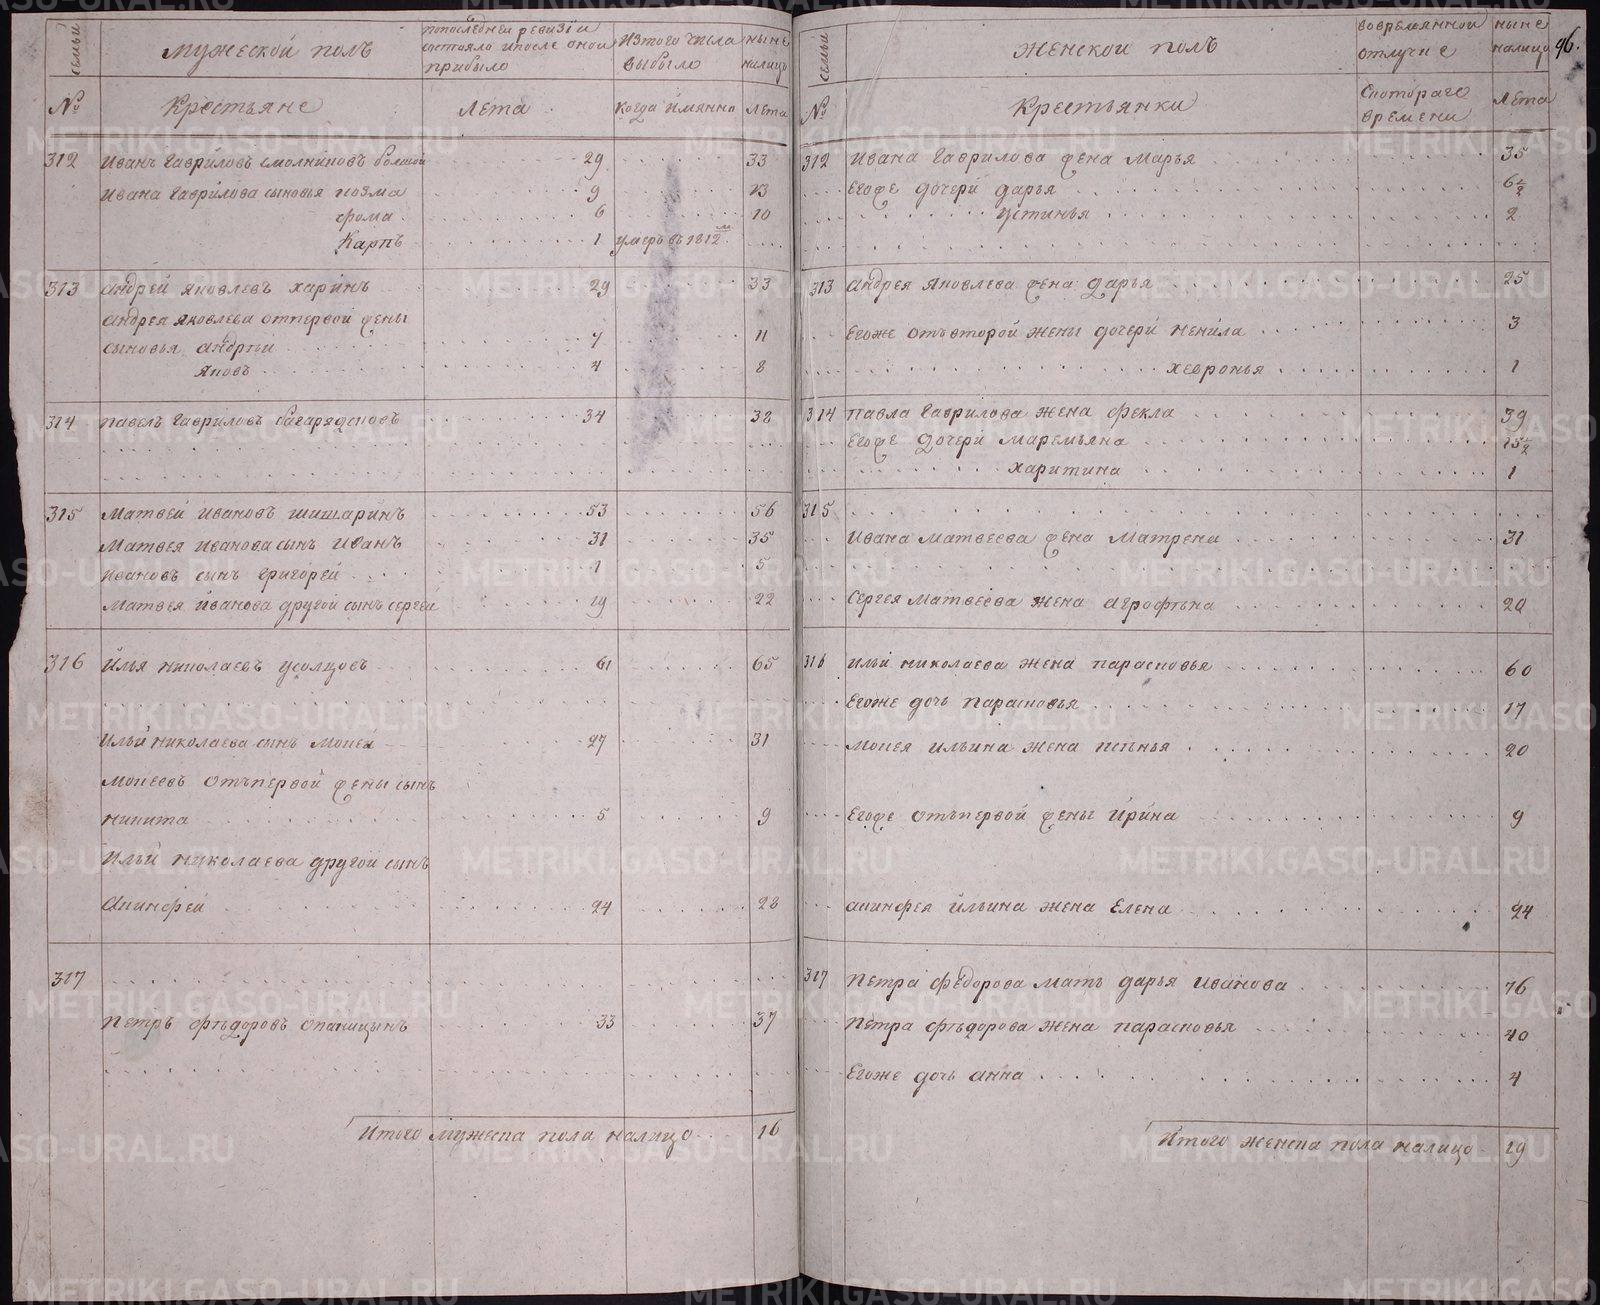 семьи
Мужеской полъ
попоследней ревизіи состояло ипосле оной прибыло
Изтого числа выбыло
ныне налицо
№
Крестьяне
Лета
когда имянно
Лета
312 Иванъ Гавриловъ смолниковъ болшой 29 33
Ивана Гаврилова сыновья козма 9 13
фома 6 10
Карпъ 1 умеръ въ 1812м
313 Андрей Яковлевъ харинъ 29 33
Андрея Яковлева отпервой жены
сыновья Андрей 7 11
Яковъ 4 8
314 Павелъ Гавриловъ багарядсковъ 34 38
315 Матвей Ивановъ шишаринъ 53 56
Матвея Иванова сынъ Иванъ 31 35
Ивановъ сынъ Григорей 1 5
Матвея Иванова другой сынъ сергей 19 22
316 Илья николаевъ усолцовъ 61 65
Ильи николаева сынъ Мокей 27 31
Мокеевъ отъпервой жены сынъ
никита 5 9
Ильи николаева другой сынъ
Акинфей 24 28
317
Петръ фѣдоровъ опаницынъ 33 37
Итого мужеска пола налицо 16
семьи
Женской полъ
вовремянной отлучке
ныне налицо
96.
№
Крестьянки
Скотораго времени
Лета
312 Ивана Гаврилова жена Марья 35
Егоже дочери дарья 6½
устинья 2
313 Андрея Яковлева жена дарья 25
Егоже отъвторой жены дочери ненила 3
хевронья 1
314 Павла Гаврилова жена фекла 39
Егоже дочери маремьяна 15½
харитина 1
315
Ивана Матвеева жена Матрена 31
Сергея Матвеева жена агрофѣна 20
316 Ильи николаева жена парасковья 60
Егоже дочь парасковья 17
Мокея ильина жена ксѣнья 20
Егоже отъпервой жены ирина 9
акинфея ильина жена Елена 24
317 Петра федорова мать дарья иванова 76
Петра фѣдорова жена парасковья 40
Егоже дочь анна 4
Итого женска пола налицо 19
METRIKI.GASO-URAL.RU